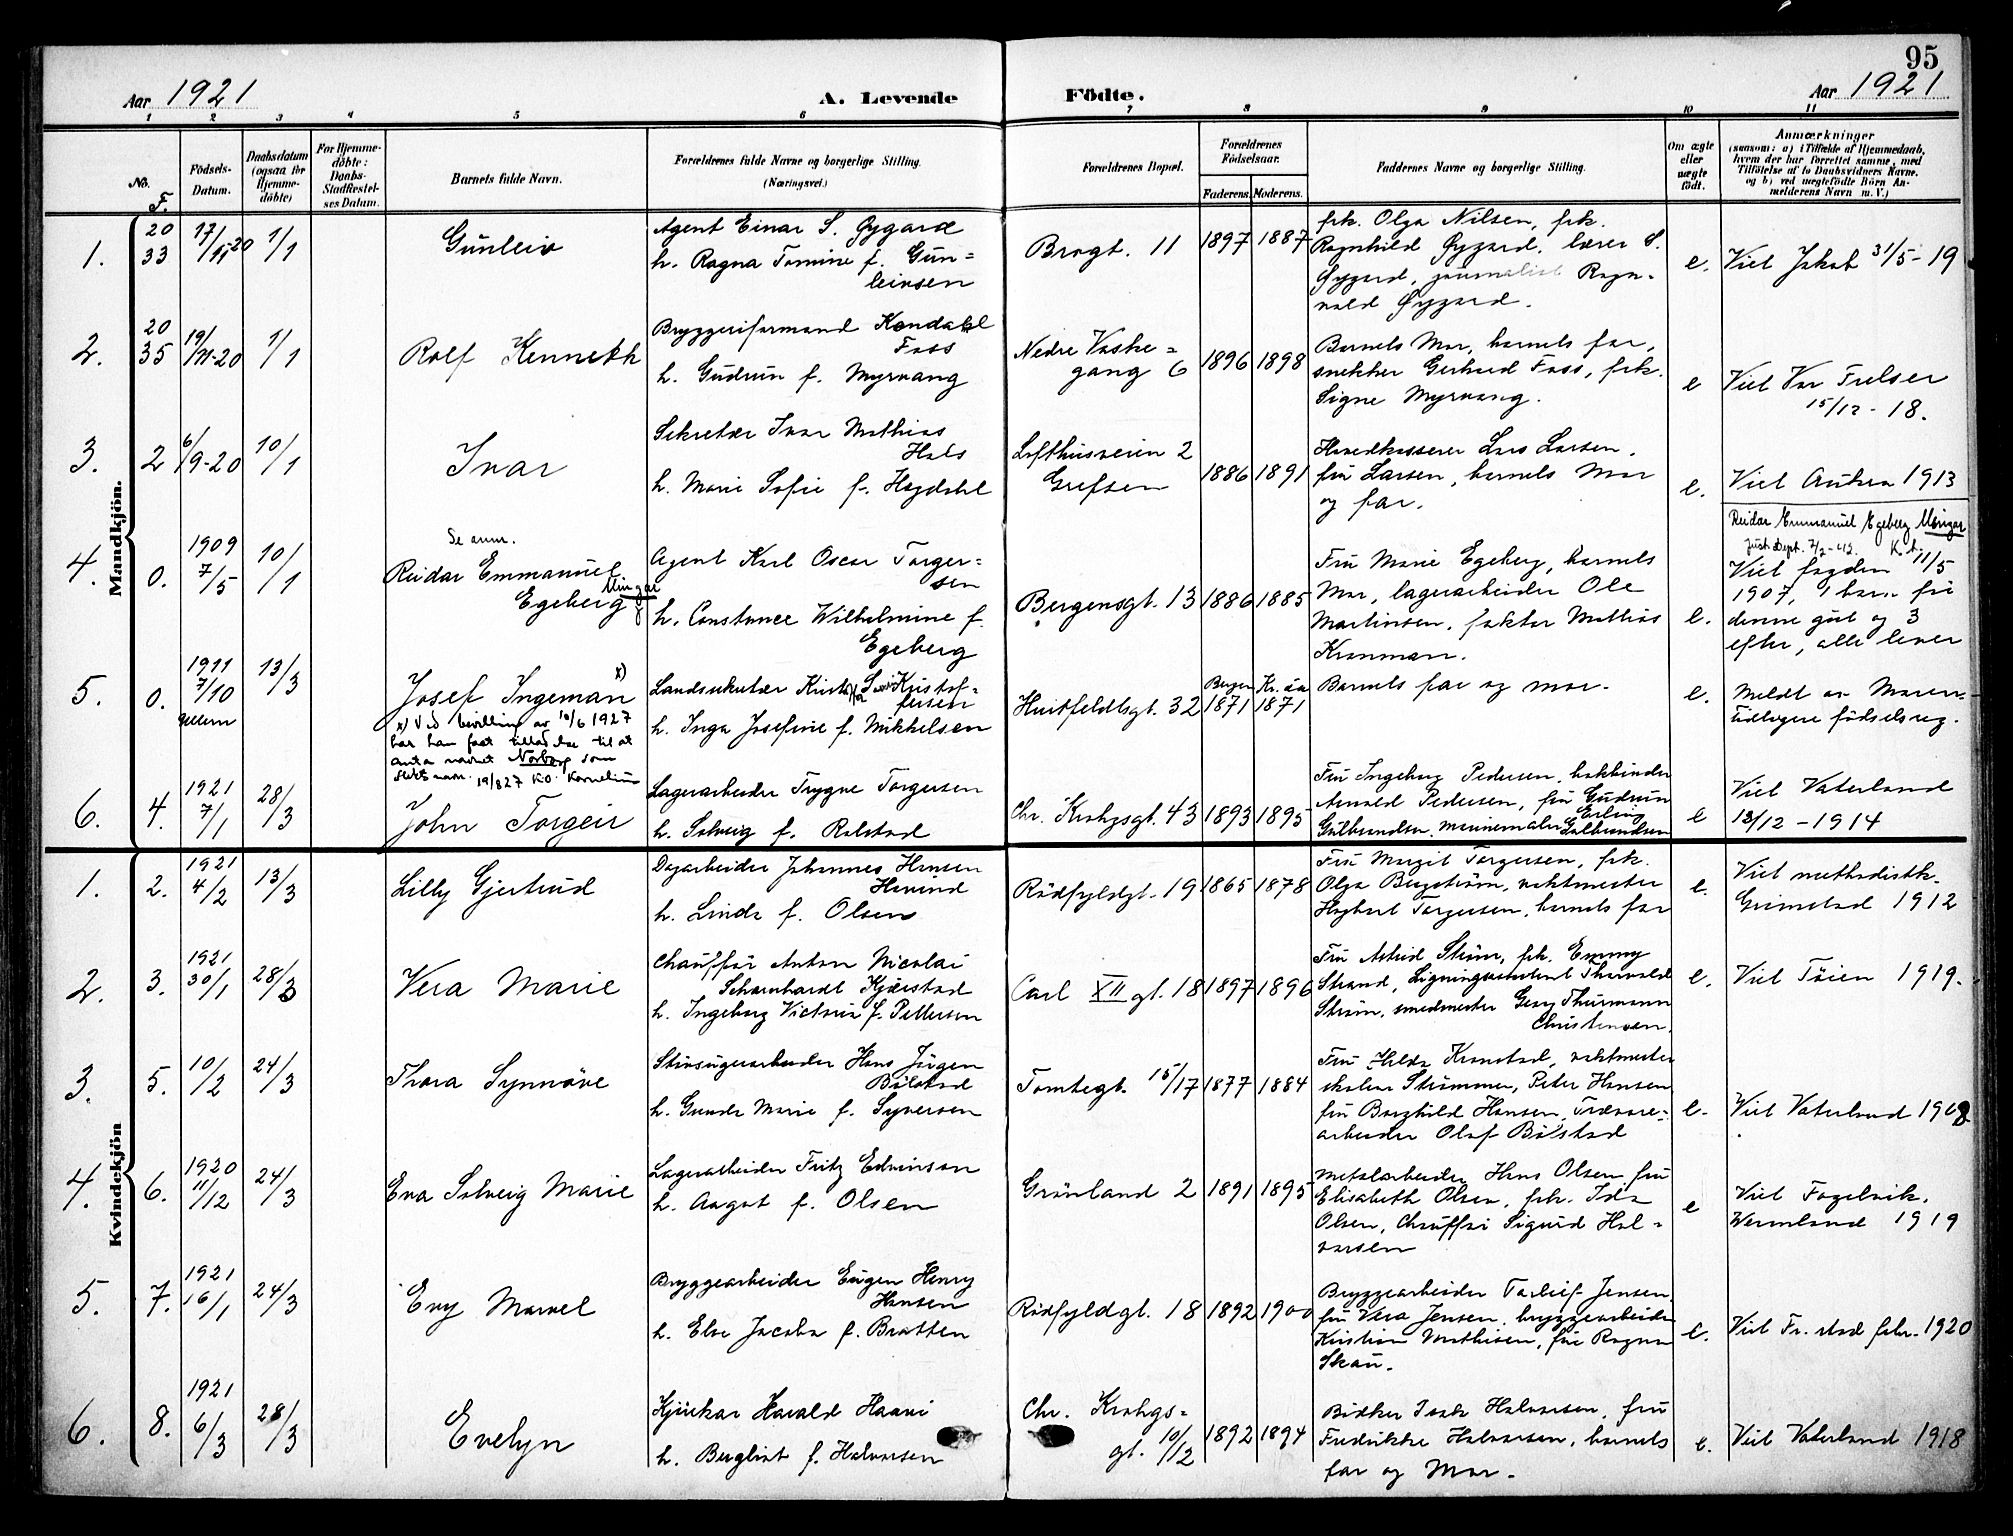 95
Aar 1921
A. Levende
Födte.
Aar 1921
1 2 3 4 5 6 7 8 9 10 11
No.
F.
Födsels-
Datum.
Daabsdatum
(ogsaa for
Hjemme-
döbte)
For Hjemme-
döbte:
Daabs-
Stadfæstel-
ses Datum.
Barnets fulde Navn.
Forældrenes fulde Navne og borgerlige Stilling.
(Næringsvei.)
Forældrenes Bopæl.
Forældrenes
Födselsaar.
Faderens.
Moderens.
Faddernes Navne og borgerlige Stilling.
Om ægte
eller
uægte
födt.
Anmærkninger
(saasom: a) i Tilfælde af Hjemmedaab,
hvem der har forrettet samme, med
Tilföielse af to Daabsvidners Navne,
og b) ved uægtefödte Börn An-
melderens Navn m. V.)
Mandkjön.
1.
20
33
17/11-20
1/1
Gunleiv
Agent Einar S. Øygard
h. Ragna Tomine f. Gun=
leivsen
Brogt. 11
1897 1887
frk. Olga Nilsen, frk.
Ragnhild Øygard, lærer S.
Øygard, journalist Ragn-
vald Øygard.
e.
Viet Jakob 31/5-19
2.
20
35
19/11-20
1/1
Rolf Kenneth
Bryggeriformand Kondahl
Foss
h. Gudrun f. Myrvang
Nedre Vaske=
gang 6
1896 1898
Barnets Mor, barnets far,
snekker Gerhard Foss, frk.
Signe Myrvang.
e
Viet Vor Frelser
15/12-18.
3.
2
6/9-20
10/1
Ivar
Sekretær Ivar Mathias
Hals
h. Marie Sofie f. Hegdahl
Lofthusveien 2
Grefsen
1886 1891
Hovedkasserer Lars Larsen,
fru Larsen, barnets Mor
og far.
e.
Viet Aukra 1913
4.
0.
1909
7/5
10/1
Se anm.
Reidar Emmanuel
Egeberg Mingar
Agent Karl Oscar Torger=
sen
h. Constance Wilhelmine f.
Egeberg
Bergensgt. 13
1886 1885
Fru Marie Egeberg, barnets
Mor, lagerarbeider Ole
Martinsen, faktor Mathias
Kronman.
e.
Reidar Emmanuel Egeberg Mingar
Just. Dept. 7/2-42. K.t.
Viet fogden 11/5
1907, 1 barn før
denne gut og 3
efter, alle lever
5.
0.
1911
7/10
13/3
Josef Ingeman x)
x) Ved bevilling av 10/6 1927
har han faat tilladelse til at
anta navnet Norberg som
slektsnavn. 19/8 27 K.O. Kornelius
Kristof=
fersen
h. Inga Josefine f. Mikkelsen
Huitfeldtsgt. 32
Bergen
1871
Kr.ia
1871
Barnets far og mor.
e.
Meldt av Moren-
tidligere fødselsreg.
6.
4.
1921
7/1
28/3
John Torgeir
Lagerarbeider Trygve Torgersen
h. Solveig f. Rolstad
Chr. Krohgsgt. 43
1893 1895
Fru Ingeborg Pedersen, bokbinder
Arnold Pedersen, fru Gudrun
Gulbrandsen, marinemaler Erling
Gulbrandsen
e
Viet Vaterland
12/12-1914
Kvindekjön
1.
2.
1921
4/2
13/3
Lilly Gjertrud
Dagarbeider Johannes Hansen
h. Linda f. Olsen
Rødfyldgt. 19
1865 1878
Fru Margit Torgersen, frk.
Olga Bergstrøm, vaktmester
Hagbart Torgersen, barnets far
e.
Viet methodistk.
Grimstad 1912
2.
3.
1921
30/1
28/3
Vera Marie
Chauffør Anton Nicolai
Scharnhardt Kjærstad
h. Ingeborg Victoria f. Pettersen
Carl XII gt. 18
1897 1896
Fru Astrid Strøm, frk. Emmy
Strand, Ligningsassistent Thorvald
Strøm, smedmester Georg Thurmann
Christensen.
e.
Viet Tøien 1919.
3.
5.
10/2
24/3
Thora Synnøve
Støvsugerarbeider Hans Jørgen
Bølstad
h. Gunda Marie f. Syversen
Tomtegt. 15/17
1877 1884
Fru Hilda Kronstad, vaktmester
skolen Strømmen, Peter Hansen
fru Borghild Hansen, Trævare=
arbeider Olaf Bølstad
e.
Viet Vaterland 1908
4.
6.
1920
11/12
24/3
Eva Solveig Marie
Lagerarbeider Fritz Edvinson
h. Aagot f. Olsen
Grønland 2
1891 1895
Metalarbeider Hans Olsen, fru
Elisabeth Olsen, frk. Ida
Olsen, Chauffør Sigurd Hal=
vorsen
e
Viet Fogelvik.
Wermland 1919
5.
7.
1921
16/1
24/3
Evy Marvel
Bryggearbeider Eugen Henry
Hansen
h. Else Jacoba f. Bratten
Rødfyldgt. 18
1892 1900
Bryggearbeider Torleif Jensen,
fru Vera Jensen, bryggearbeider
Kristian Mathisen, fru Ragna
Skau.
e.
Viet Fr.stad febr. 1920
6.
8.
1921
6/3
28/3
Evelyn
Kjørekar Harald Haavi
h. Bergliot f. Halvorsen
Chr. Krohgs=
gt. 10/12
1892 1894
Bødker Isak Halvorsen, fru
Fredrikke Halvorsen, barnets
far og Mor.
e.
Viet Vaterland 1918